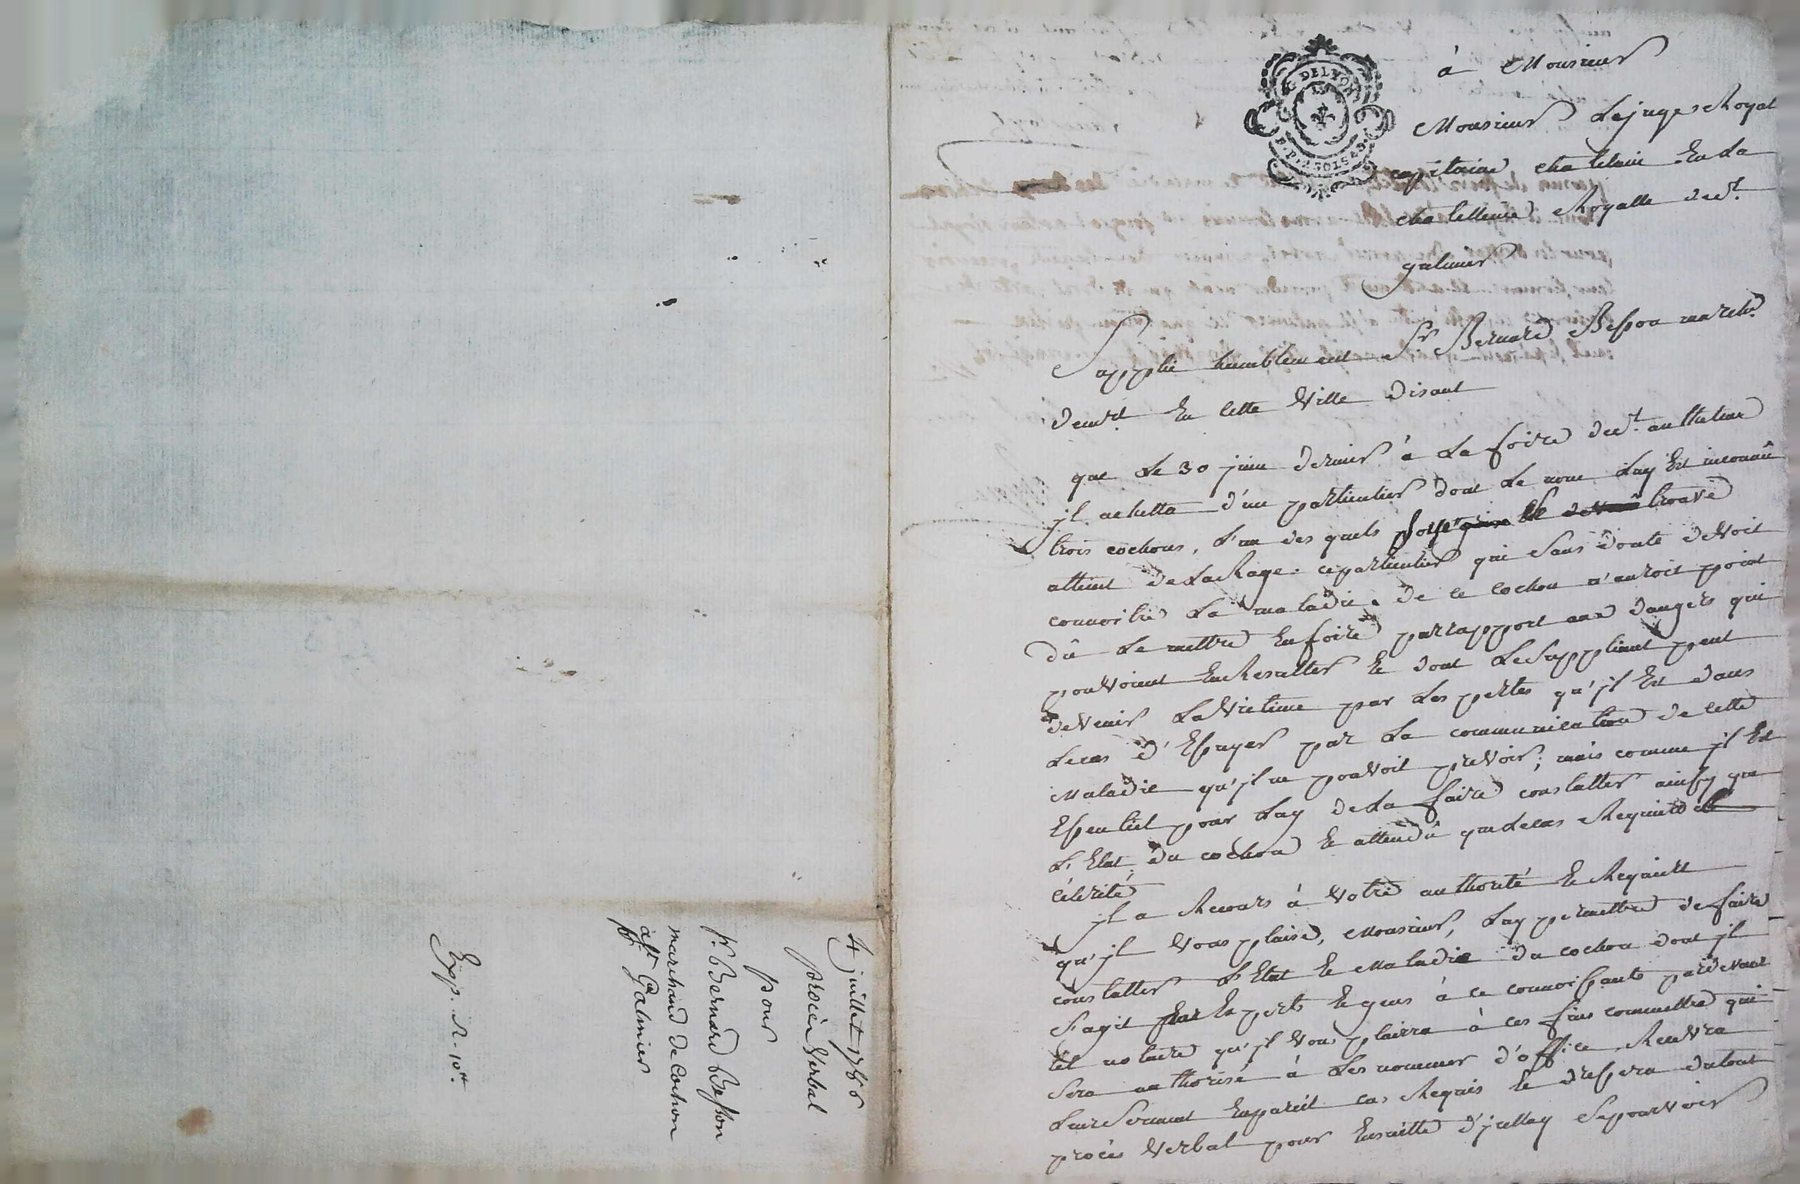 4 juillet 1786
procès Verbal
pour
sr. Bernard Besson
marchand de Cochon
à st Galmier
Exp. R. 10tt
G. DELYON
à Monsieur
Monsieur Lejuge Royal
capitaine chatelain En La
chatellenie Royalle de st.
galmier
Supplie humblement Sr. Bernard Besson march.d
demrt. En cette Ville Disant
que Le 30 juin dernier à La foire de st. anthelme
jl achetta d'un particulier dont Le nom Luy Est inconnû
trois cochons, L'un des quels trouvé
atteint de La Rage. ce particulier qui Sans doute deVoit
connoitre La maladie de ce cochon n'auroit point
dû Le mettre En foire par rapport aux dangers qui
pouVoient En Resulter Et dont Le Suppliant peut
deVenir La Victime par Les pertes qu'jl Est dans
Le cas d'Essuyer par La communication de cette
Maladie qu'jl ne pouVoit preVoir; mais comme jl Est
Essentiel pour Luy de La faire constatter ainsy que
L'Etat du cochon Et attendû que Le cas Requiert
célerité
jl a Recours à Votre authorité Et Requiert
qu'jl Vous plaise, Monsieur, Luy permettre de faire
constatter L'Etat Et Maladie du cochon dont jl
S'agit par Experts Et gens à ce connoissants pardevant
tel notaire qu'jl Vous plairra à ces fins commettre qui
Sera authorisé à Les nommer d'office, ReceVra
Leur Serment En pareil cas Requis Et dressera du tout
procès Verbal pour Ensuitte d'jcelluy Se pourVoir